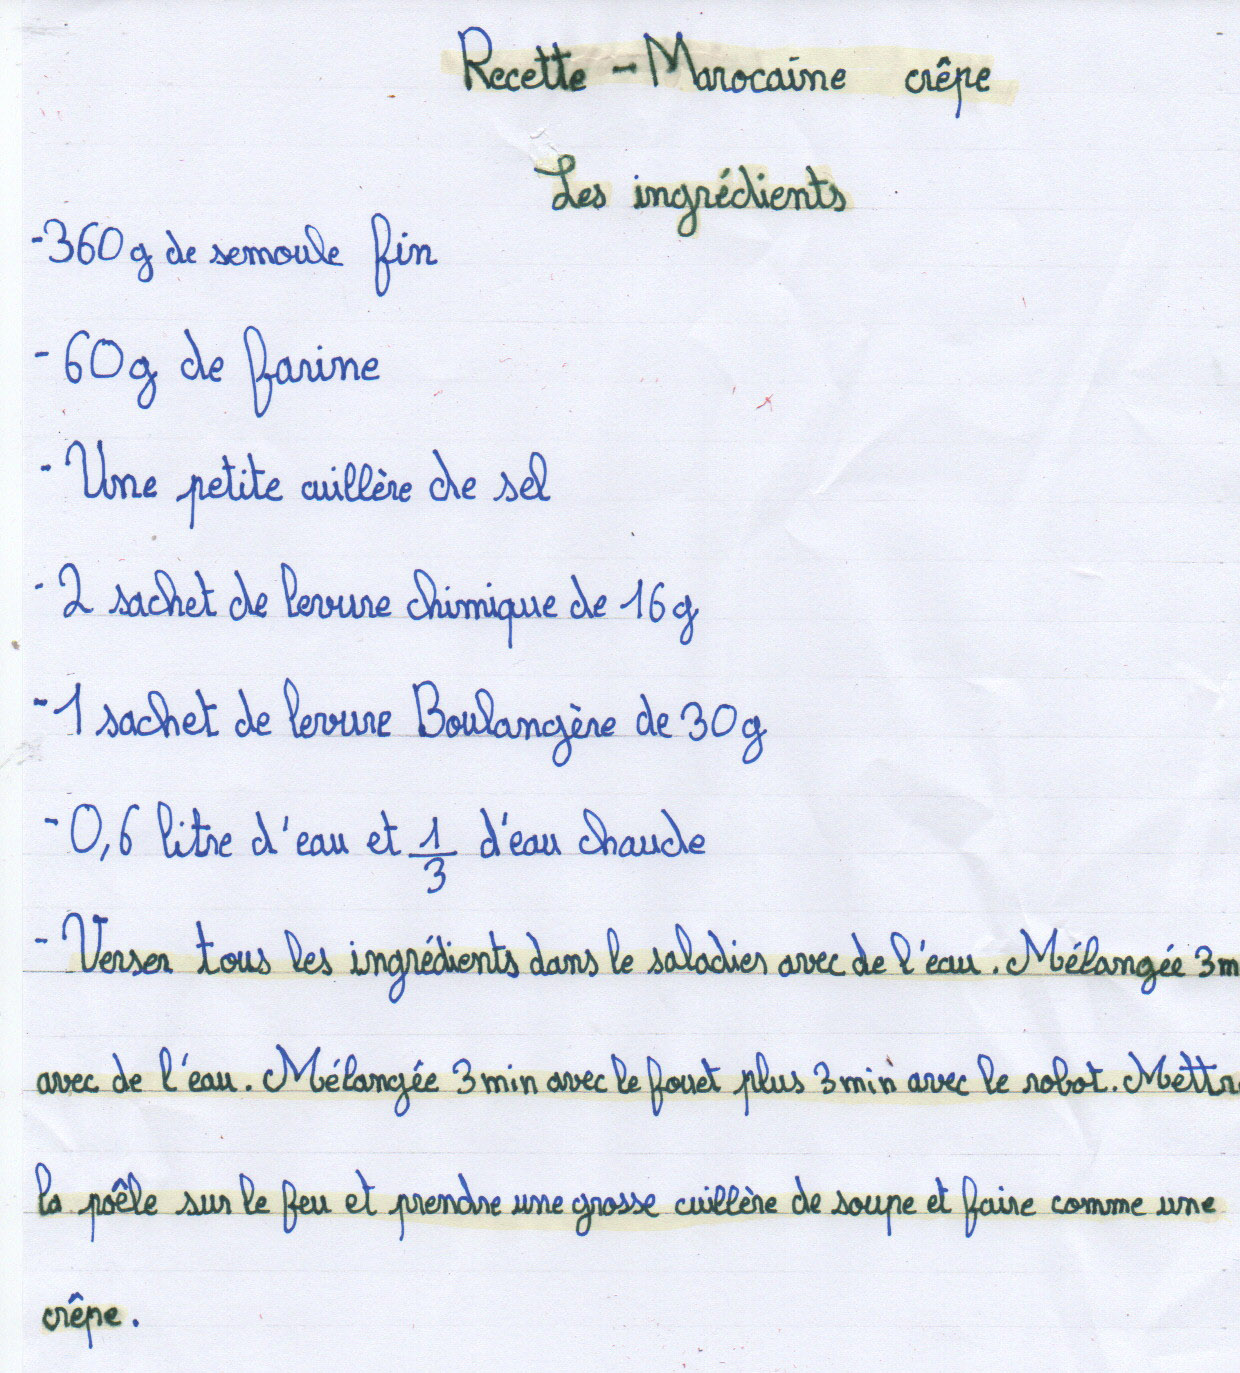 Recette - Marocaine crêpe
Les ingrédients
-360g de semoule fin
-60g de farine
-Une petite cuillère de sel
-2 sachet de levure chimique de 16g
-1 sachet de levure Boulangère de 30g
-0,6 litre d'eau et 1/3 d'eau chaude
-Verser tous les ingrédients dans le saladier avec de l'eau. Mélangée 3m
avec de l'eau. Mélangée 3min avec le fouet plus 3min avec le robot. Mettr
la poêle sur le feu et prendre une grosse cuillère de soupe et faire comme une
crêpe.